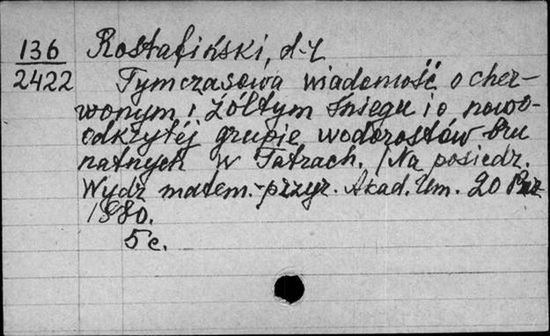 136
2422
Rostafiński, d-r
Tymczasowa wiadomość o czer-
wonym i żółtym śniegu i o nowo-
odkrytéj grupie wodorostów bru
natnych w Tatrach. /Na posiedz.
Wydz matem.-przyr. Akad. Um. 20
1880.
5 c.